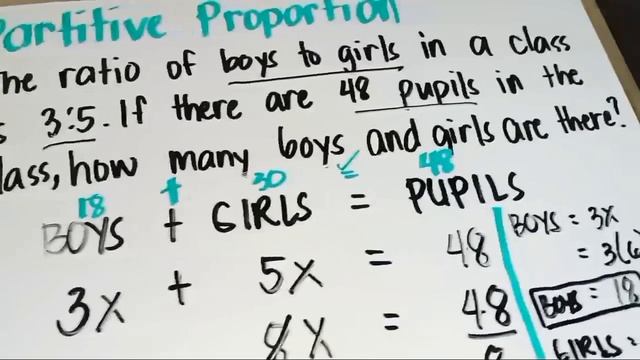 Partitive Proportion
The ratio of boys to girls in a class
is 3:5. If there are 48 pupils in the
class, how many boys and girls are there?
18 + 30 48
BOYS + GIRLS = PUPILS
3x + 5x = 48
8x = 48
BOYS = 3x
= 3(6
BOYS = 18
GIRLS =